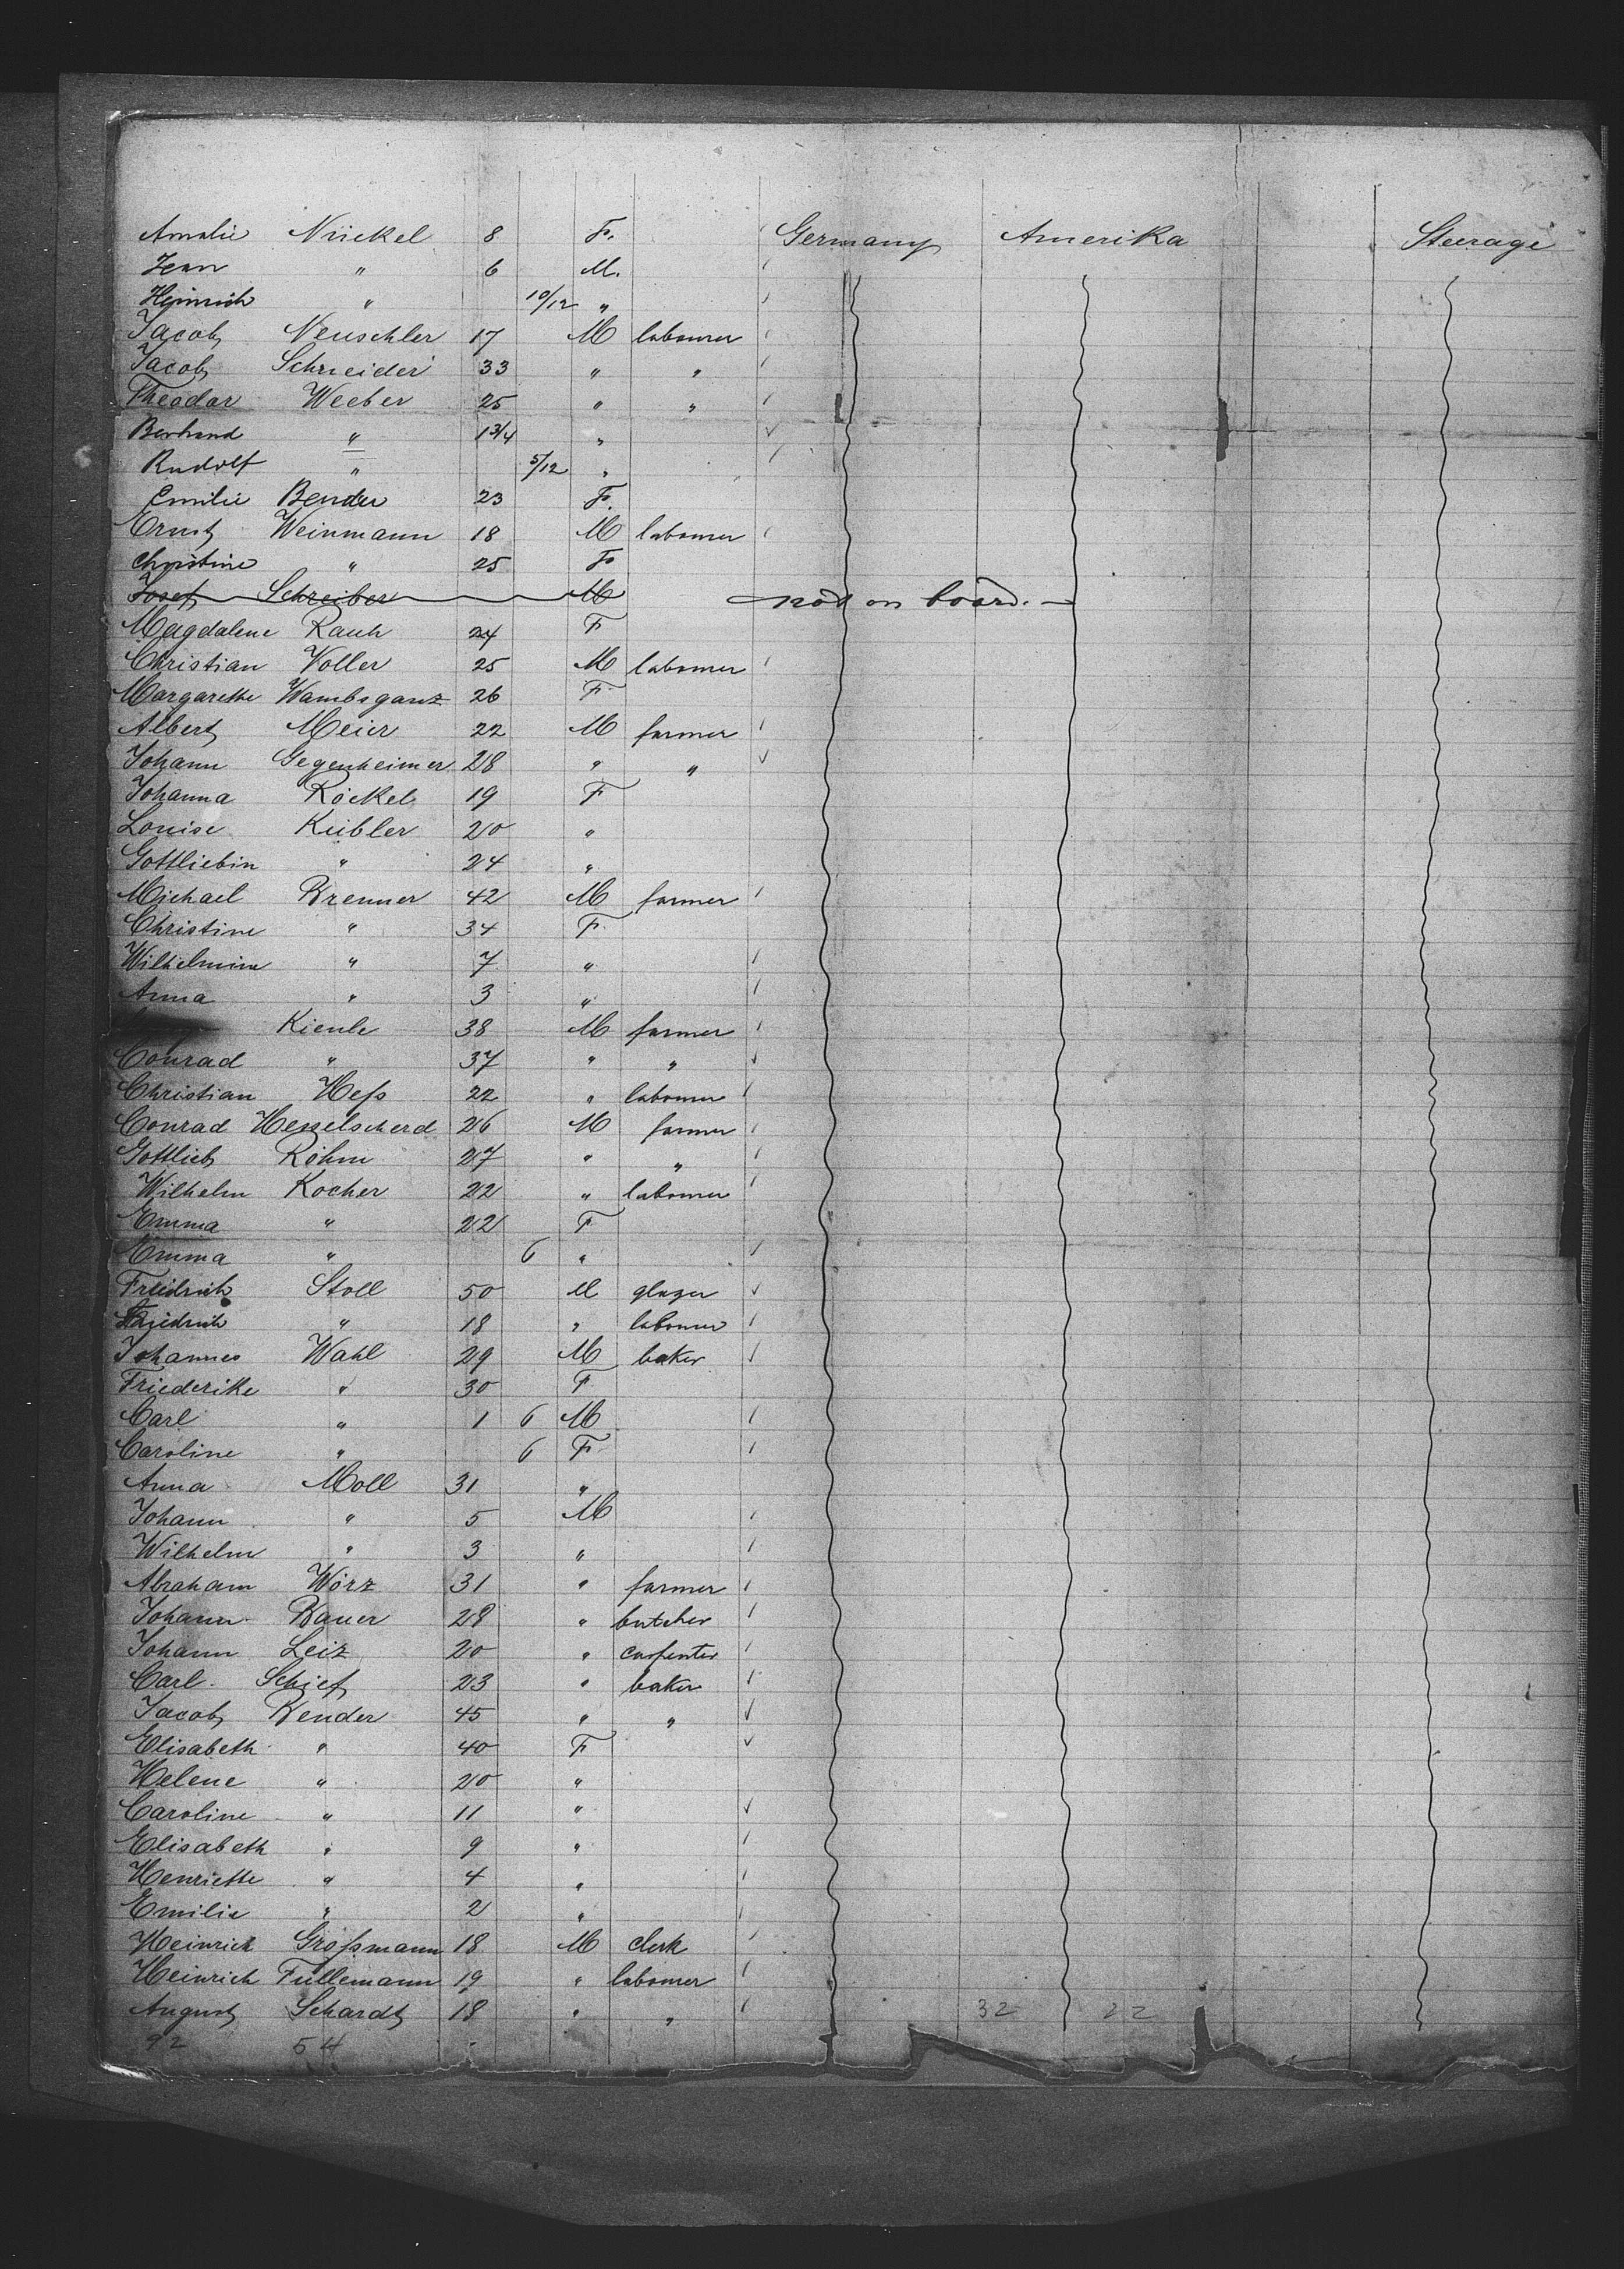 Amalie Nückel 8 F. Germany Amerika Steerage
Jean " 6 M.
Heinrich " 10/12 "
Jacob Neuschler 17 M labourer
Jacob Schneider 33 " "
Theodor Weeber 25 " "
Berhand " 1 3/4 "
Rudolf " 5/12 "
Emilie Bender 23 F.
Ernst Weinmann 18 M labourer
Christine " 25 F
Josef Schreiber M not on board.
Magdalene Rauh 24 F
Christian Voller 25 M labourer
Margarethe Wambsganz 26 F
Albert Meier 22 M farmer
Johann Gegenheimer 28 " "
Johanna Röckel 19 F
Louise Kübler 20 "
Gottliebin " 24 "
Michael Brenner 42 M farmer
Christine " 34 F
Wilhelmine " 7 "
Anna " 3 "
Kienle 38 M farmer
Conrad " 37 " "
Christian Heß 22 " labourer
Conrad Hesselscherd 26 M farmer
Gottlieb Röhm 27 " "
Wilhelm Kocher 22 " labourer
Emma " 22 F
Emma " 6 "
Friedrich Stoll 50 M glazer
Friedrich " 18 " labourer
Johannes Wahl 29 M baker
Friederike " 30 F
Carl " 1 6 M
Caroline " 6 F
Anna Moll 31 "
Johann " 5 M
Wilhelm " 3 "
Abraham Wörz 31 " farmer
Johann Bauer 28 " butcher
Johann Leiz 20 " carpenter
Carl Schief 23 " baker
Jacob Bender 45 " "
Elisabeth " 40 F
Helene " 20 "
Caroline " 11 "
Elisabeth " 9 "
Henriette " 4 "
Emilie " 2 "
Heinrich Großmann 18 M clerk
Heinrich Füllemann 19 " labourer
August Schardt 18 " " 32 22
92 54